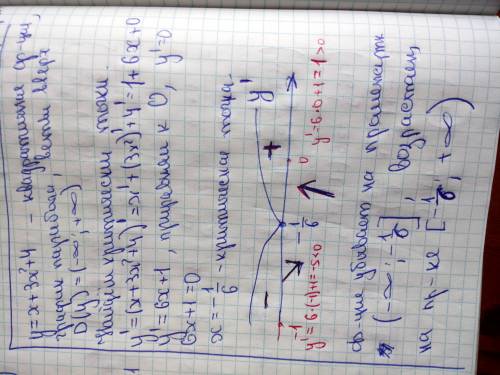 y=x+3x²+4 - квадратичная ф-ция,
график парабола, ветви вверх
D(y)=(-∞; +∞)
Найдём критические точки.
y'=(x+3x²+4)'=x'+(3x²)'+4'=1+6x+0
y'=6x+1, приравняем к 0, y'=0
6x+1=0
x=-1/6 - критическая точка.
- + y'
-1 -1/6 0
y'=6·(-1)+1=-5<0 y'=6·0+1=1>0
Ф-ция убывает на промежутк
(-∞; -1/6], возрастает
на пр-ке [-1/6; +∞)
1